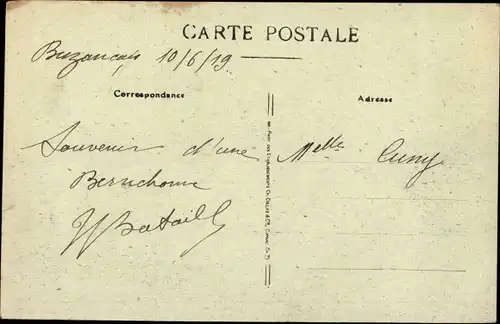 CARTE POSTALE
Buzançais 10/6/19
Correspondance
Adresse
Souvenir d'une
Berrichonne
Bataill
Melle Cuny